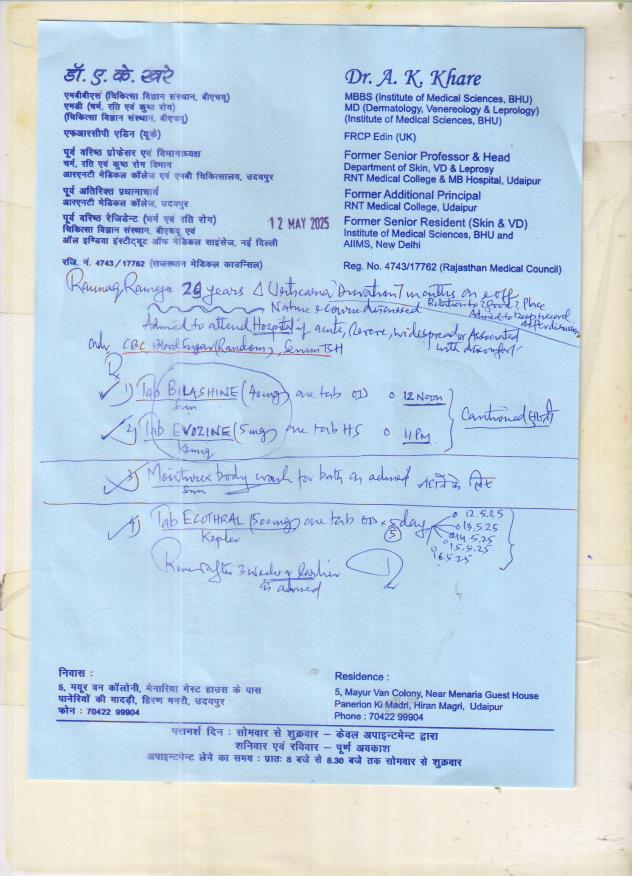 डॉ. ए. के. खरे
एमबीबीएस (चिकित्सा विज्ञान संस्थान, बीएचयू)
एमडी (चर्म, रति एवं कुष्ठ रोग)
(चिकित्सा विज्ञान संस्थान, बीएचयू)
एफआरसीपी एडिन (यूके)
पूर्व वरिष्ठ प्रोफेसर एवं विभागाध्यक्ष
चर्म, रति एवं कुष्ठ रोग विभाग
आरएनटी मेडिकल कॉलेज एवं एमबी चिकित्सालय, उदयपुर
पूर्व अतिरिक्त प्रधानाचार्य
आरएनटी मेडिकल कॉलेज, उदयपुर
पूर्व वरिष्ठ रेजिडेन्ट (चर्म एवं रति रोग)
चिकित्सा विज्ञान संस्थान, बीएचयू एवं
ऑल इण्डिया इंस्टीट्यूट ऑफ मेडिकल साइंसेज, नई दिल्ली
रजि. नं. 4743/17762 (राजस्थान मेडिकल काउन्सिल)
Dr. A. K. Khare
MBBS (Institute of Medical Sciences, BHU)
MD (Dermatology, Venereology & Leprology)
(Institute of Medical Sciences, BHU)
FRCP Edin (UK)
Former Senior Professor & Head
Department of Skin, VD & Leprosy
RNT Medical College & MB Hospital, Udaipur
Former Additional Principal
RNT Medical College, Udaipur
Former Senior Resident (Skin & VD)
Institute of Medical Sciences, BHU and
AIIMS, New Delhi
Reg. No. 4743/17762 (Rajasthan Medical Council)
12 MAY 2025
Raunaq Raneja 26 years Δ Urticaria Duration 7 months on & off
Relation to ? food ? Place
Nature & course discussed Advised to keep record
Advised to attend Hospital if acute, severe, widespread or associated with discomfort
Adv CBC, Blood Sugar (Random), Serum TSH
1) Tab BILASHINE (40mg) one tab OD 12 Noon
Sun
2) Tab EVOZINE (5mg) one tab HS 11 Pm
Cautioned
3) Moisturex body wash for bath as advised नहाने के लिए
Sun
4) Tab ECOTHRAL (500mg) one tab OD x 5 day
Kepler
12.5.25
13.5.25
14.5.25
15.5.25
16.5.25
Review after 3 weeks or earlier
as advised
निवास :
5, मयूर वन कॉलोनी, मेनारिया गेस्ट हाउस के पास
पानेरियों की मादड़ी, हिरण मगरी, उदयपुर
फोन : 70422 99904
Residence :
5, Mayur Van Colony, Near Menaria Guest House
Panerion Ki Madri, Hiran Magri, Udaipur
Phone : 70422 99904
परामर्श दिन : सोमवार से शुक्रवार – केवल अपाइन्टमेन्ट द्वारा
शनिवार एवं रविवार – पूर्ण अवकाश
अपाइन्टमेन्ट लेने का समय : प्रातः 8 बजे से 8.30 बजे तक सोमवार से शुक्रवार